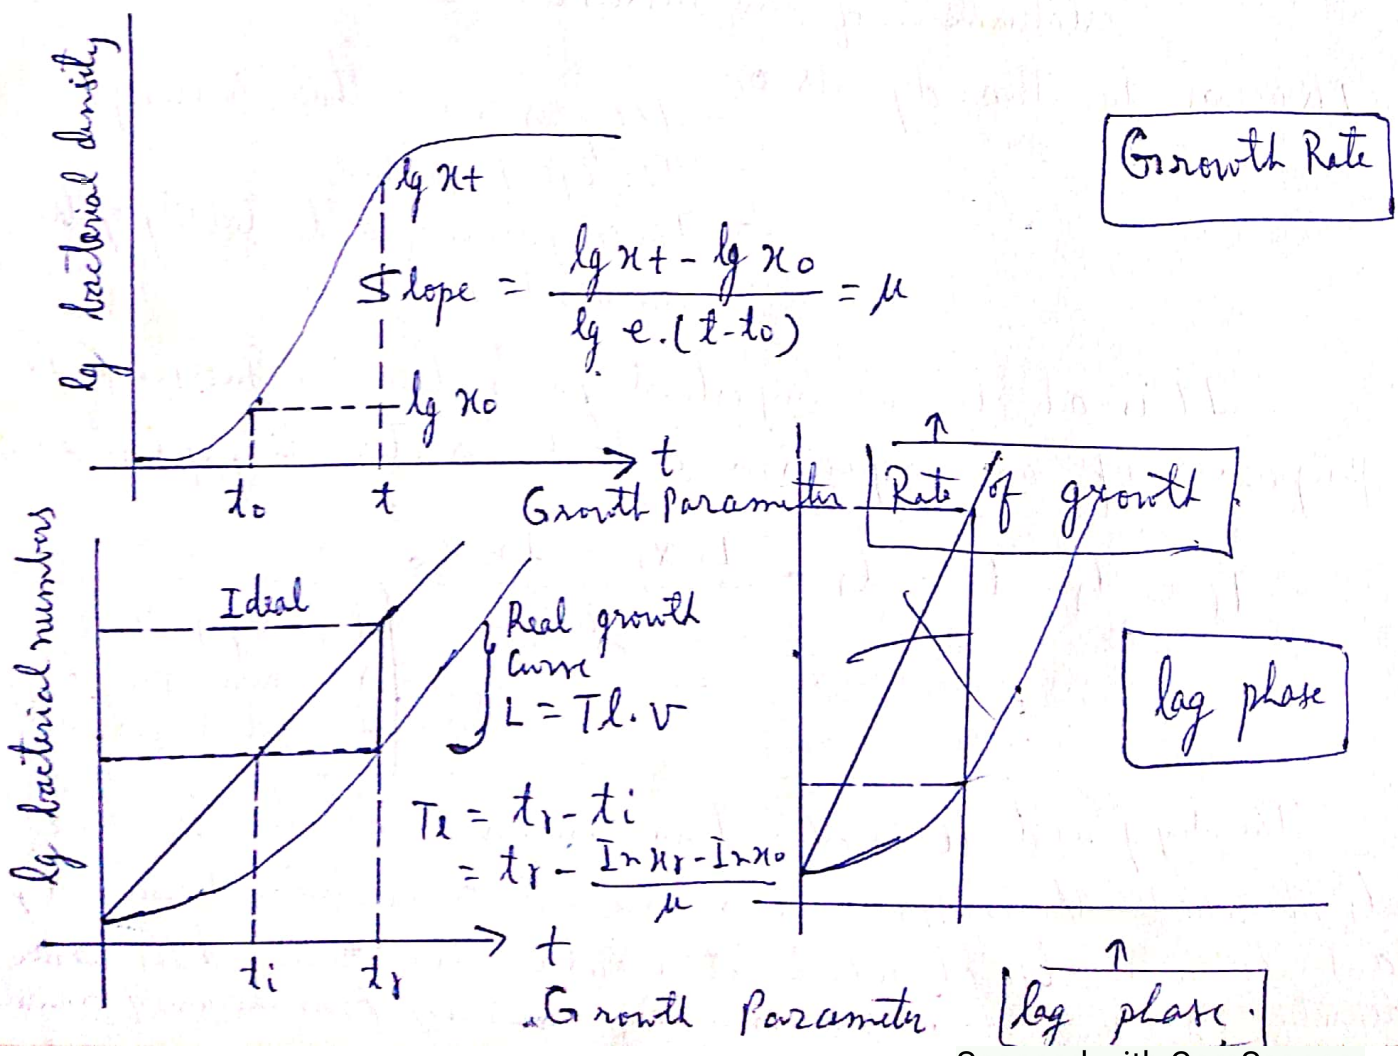 lg bacterial density
Growth Rate
lg xt
Slope = lg xt - lg x0 / lg e.(t-t0) = μ
lg x0
t
t0 t
Growth Parameter Rate of growth
lg bacterial numbers
Ideal
Real growth
Curve
L = Tl.v
lag phase
Tl = tr - ti
= tr - In xr - In x0 / μ
t
ti tr
Growth Parameter lag phase.